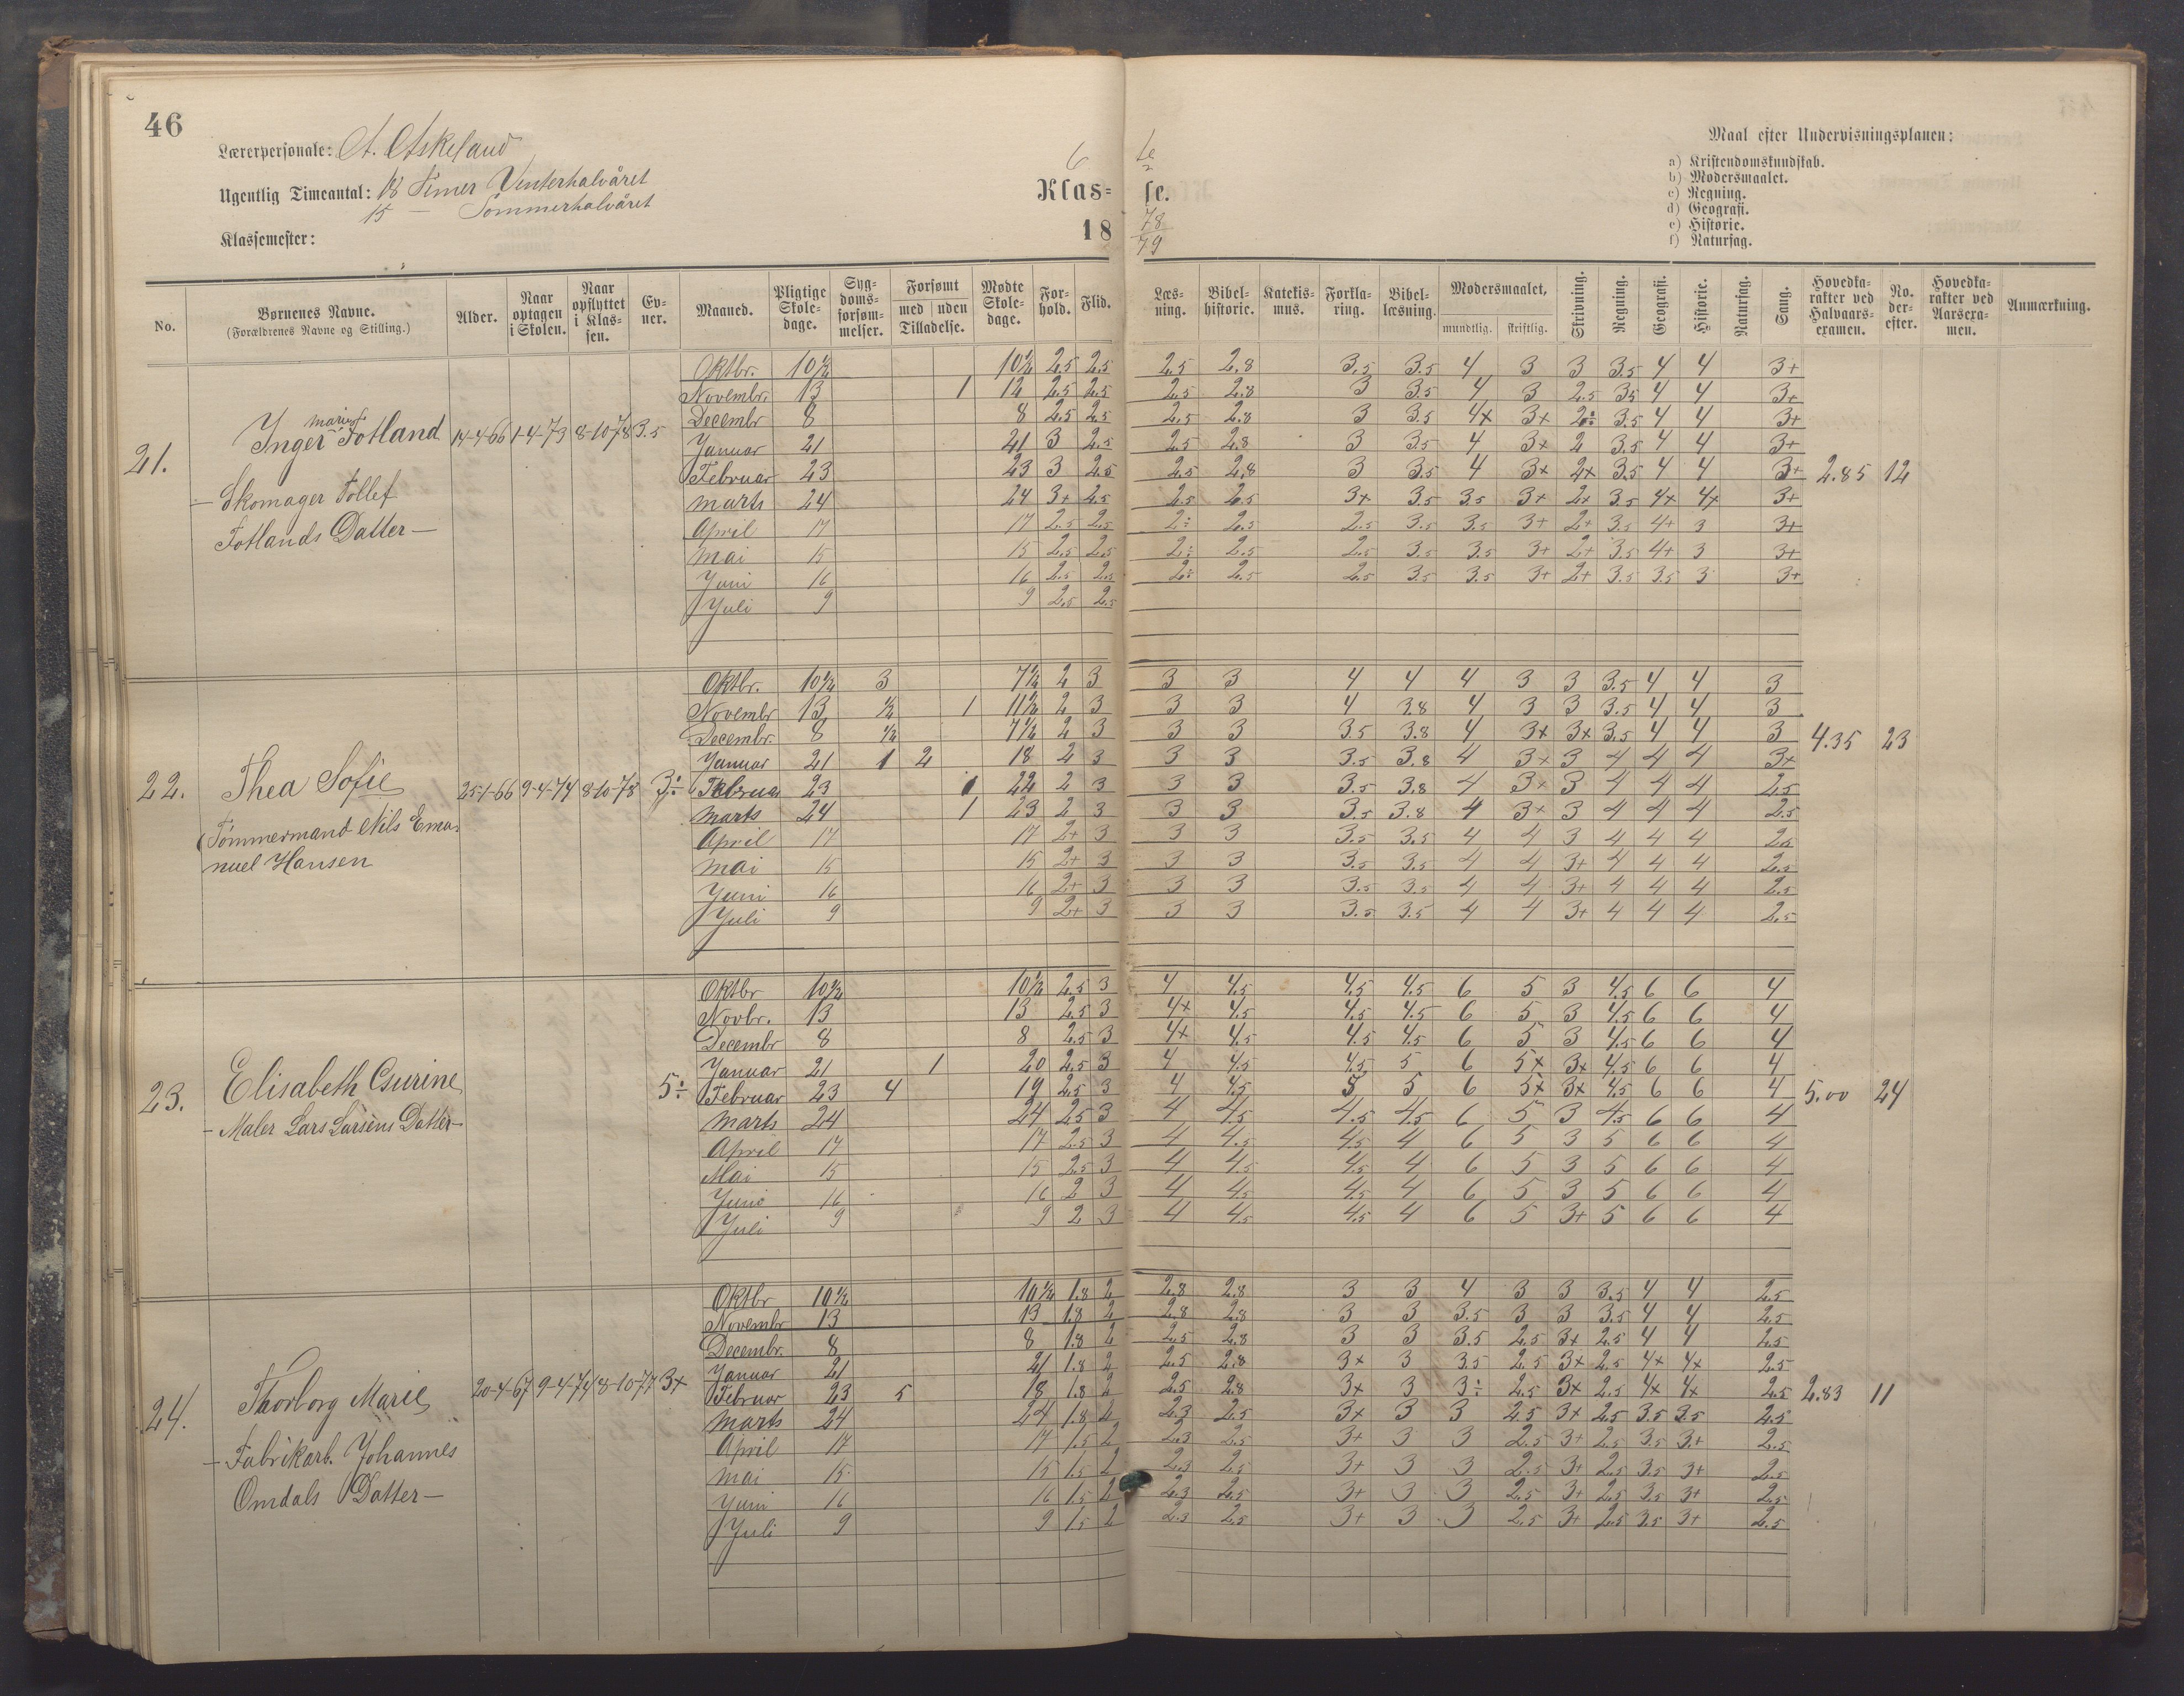 46
Lærerpersonale: A. Askeland
Ugentlig Timeantal: 18 Timer Vinterhalvåret
15 — Sommerhalvåret
Klassemester:
6te
Klasse.
1878/79
Maal efter Undervisningsplanen:
a) Kristendomskundskab.
b) Modersmaalet.
c) Regning.
d) Geografi.
e) Historie.
f) Naturfag.
No. | Børnenes Navne. (Forældrenes Navne og Stilling.) | Alder. | Naar optagen i Skolen. | Naar opflyttet i Klassen. | Evner. | Maaned. | Pligtige Skoledage. | Sygdomsforsømmelser. | Forsømt med uden Tilladelse. | Mødte Skoledage. | Forhold. | Flid. | Læsning. | Bibelhistorie. | Katekismus. | Forklaring. | Bibellæsning. | Modersmaalet, mundtlig. skriftlig. | Skrivning. | Regning. | Geografi. | Historie. | Naturfag. | Sang. | Hovedkarakter ved Halvaarsexamen. | No. derefter. | Hovedkarakter ved Aarsexamen. | Anmærkning.
21. Inger Marie Fotland 14-4-66 1-4-73 8-10-78 3.5
— Skomager Tollef
Fotlands Datter —
Oktbr. 10½ 10½ 2.5 2.5 2.5 2.8 3.5 3.5 4 3 3 3.5 4 4 3+
Novembr. 13 1 12 2.5 2.5 2.5 2.8 3 3.5 4 3 2.5 3.5 4 4 3+
Decembr 8 8 2.5 2.5 2.5 2.8 3 3.5 4x 3x 2÷ 3.5 4 4 3+
Januar 21 21 3 2.5 2.5 2.8 3 3.5 4 3x 2 3.5 4 4 3+
Februar 23 23 3 2.5 2.5 2.8 3 3.5 4 3x 2x 3.5 4 4 3+ 2.85 12
Marts 24 24 3+ 2.5 2.5 2.5 3x 3.5 3.5 3+ 2x 3.5 4x 4x 3+
April 17 17 2.5 2.5 2÷ 2.5 2.5 3.5 3.5 3+ 2+ 3.5 4+ 3 3+
Mai 15 15 2.5 2.5 2÷ 2.5 2.5 3.5 3.5 3+ 2+ 3.5 4+ 3 3+
Juni 16 16 2.5 2.5 2÷ 2.5 2.5 3.5 3.5 3+ 2+ 3.5 3.5 3 3+
Juli 9 9 2.5 2.5
22. Thea Sofie 25-1-66 9-4-74 8-10-78 3÷
(Tömmermand Nils Ema-
nuel Hansen
Oktbr. 10½ 3 7½ 2 3 3 3 4 4 4 3 3 3.5 4 4 3
Novembr 13 ½ 1 11½ 2 3 3 3 4 3.8 4 3 3 3.5 4 4 3
Decembr. 8 ½ 7½ 2 3 3 3 3.5 3.8 4 3x 3x 3.5 4 4 3 4.35 23
Januar 21 1 2 18 2 3 3 3 3.5 3.8 4 3x 3 4 4 4 3x
Februar 23 1 22 2 3 3 3 3.5 3.8 4 3x 3 4 4 4 2.5
Marts 24 1 23 2 3 3 3 3.5 3.8 4 3x 3 4 4 4 2.5
April 17 17 2+ 3 3 3 3.5 3.5 4 4 3 4 4 4 2.5
Mai 15 15 2+ 3 3 3 3.5 3.5 4 4 3+ 4 4 4 2.5
Juni 16 16 2+ 3 3 3 3.5 3.5 4 4 3+ 4 4 4 2.5
Juli 9 9 2+ 3 3 3 3.5 3.5 4 4 3+ 4 4 4 2.5
23. Elisabeth Gurine 5÷
— Maler Lars Larsens Datter —
Oktbr 10½ 10½ 2.5 3 4 4.5 4.5 4.5 6 5 3 4.5 6 6 4
Novbr. 13 13 2.5 3 4x 4.5 4.5 4.5 6 5 3 4.5 6 6 4
Decembr 8 8 2.5 3 4x 4.5 4.5 4.5 6 5 3 4.5 6 6 4
Januar 21 1 20 2.5 3 4 4.5 4.5 5 6 5x 3x 4.5 6 6 4
Februar 23 4 19 2.5 3 4 4.5 5 5 6 5x 3x 4.5 6 6 4 5.00 24
Marts 24 24 2.5 3 4 4.5 4.5 4.5 6 5 3 4.5 6 6 4
April 17 17 2.5 3 4 4.5 4.5 4 6 5 3 5 6 6 4
Mai 15 15 2.5 3 4 4.5 4.5 4 6 5 3 5 6 6 4
Juni 16 16 2 3 4 4.5 4.5 4 6 5 3 5 6 6 4
Juli 9 9 2 3 4 4.5 4.5 4 6 5 3+ 5 6 6 4
24. Thorborg Marie 20-4-67 9-4-74 8-10-77 3x
— Fabrikarb. Johannes
Omdals Datter —
Oktbr 10½ 10½ 1.8 2 2.8 2.8 3 3 4 3 3 3.5 4 4 2.5
Novembr 13 13 1.8 2 2.8 2.8 3 3 3.5 3 3 3.5 4 4 2.5
Decembr. 8 8 1.8 2 2.5 2.8 3 3 3.5 2.5 3x 2.5 4 4 2.5
Januar 21 21 1.8 2 2.5 2.8 3x 3 3.5 2.5 3x 2.5 4x 4x 2.5
Februar 23 5 18 1.8 2 2.5 2.8 3x 3 3÷ 2.5 3x 2.5 4x 4x 2.5 2.83 11
Marts 24 24 1.8 2 2.3 2.5 3x 3 3 2.5 3x 2.5 3.5 3.5 2.5
April 17 17 1.5 2 2.3 2.5 3+ 3 3 2.5 3+ 2.5 3.5 3+ 2.5
Mai 15 15 1.5 2 2.3 2.5 3+ 3 3 2.5 3+ 2.5 3.5 3+ 2.5
Juni 16 16 1.5 2 2.3 2.5 3+ 3 3 2.5 3+ 2.5 3.5 3+ 2.5
Juli 9 9 1.5 2 2.3 2.5 3+ 3 3 2.5 3+ 2.5 3.5 3+ 2.5